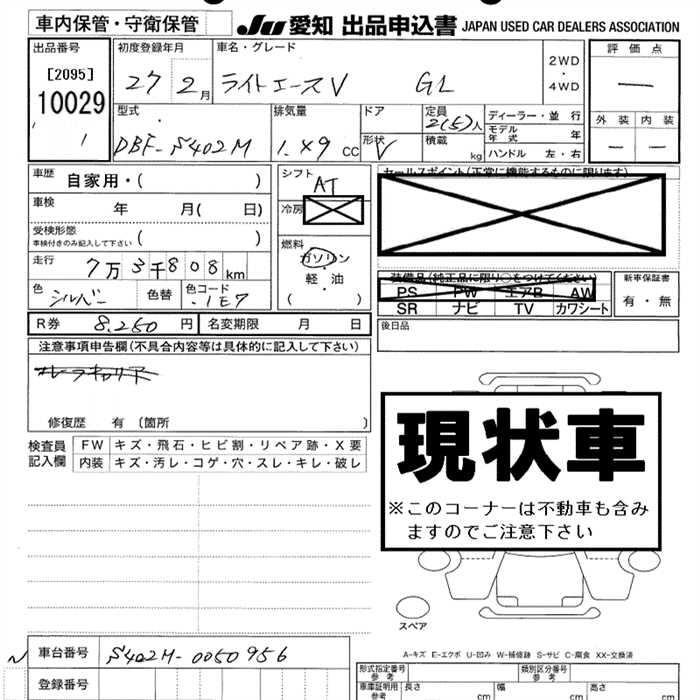 車内保管・守衛保管 JU 愛知 出品申込書 JAPAN USED CAR DEALERS ASSOCIATION
出品番号
[2095]
10029
1
初度登録年月
27 2月
車名・グレード
ライトエースV GL
2WD
・
4WD
評価点
―
外装 内装
― ―
型式
DBF-S402M
排気量
1.49cc
ドア
形状
V
定員
2(5)人
積載 kg
ディーラー・並行
モデル年式 年
ハンドル 左・右
車歴
自家用・( )
車検 年 月( 日)
受検形態
車検付きのみ記入して下さい ( )
走行
7万3千808km
色
シルバー 色替
色コード
1E7
シフト
AT
冷房
燃料
ガソリン
・
軽・油
( )
セールスポイント(正常に機能するものに限ります)
装備品(純正品に限り○をつけてください)
PS PW エアB AW
SR ナビ TV カワシート
新車保証書
有・無
後日品
R券 8,260円 名変期限 月 日
注意事項申告欄(不具合内容等は具体的に記入して下さい)
修復歴 有 〔箇所 〕
検査員
記入欄
FW キズ・飛石・ヒビ割・リペア跡・X要
内装 キズ・汚レ・コゲ・穴・スレ・キレ・破レ
現状車
※このコーナーは不動車も含み
ますのでご注意下さい
スペア
A-キズ E-エクボ U-凹み W-補修跡 S-サビ C-腐食 XX-交換済
車台番号 S402M-0050956
登録番号
型式指定番号 類別区分番号
車庫証明用
参考
長さ cm 幅 cm 高さ cm